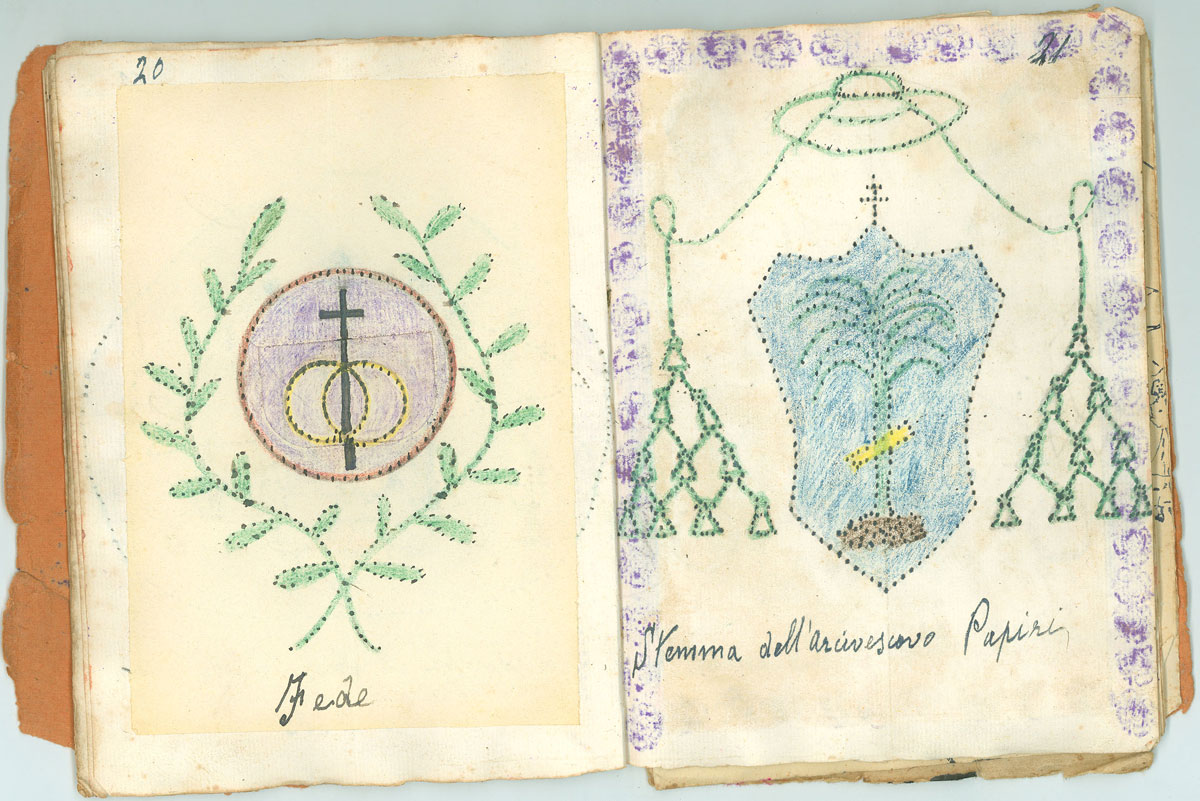 20
Fede
21
Stemma dell'arcivescovo Papiri